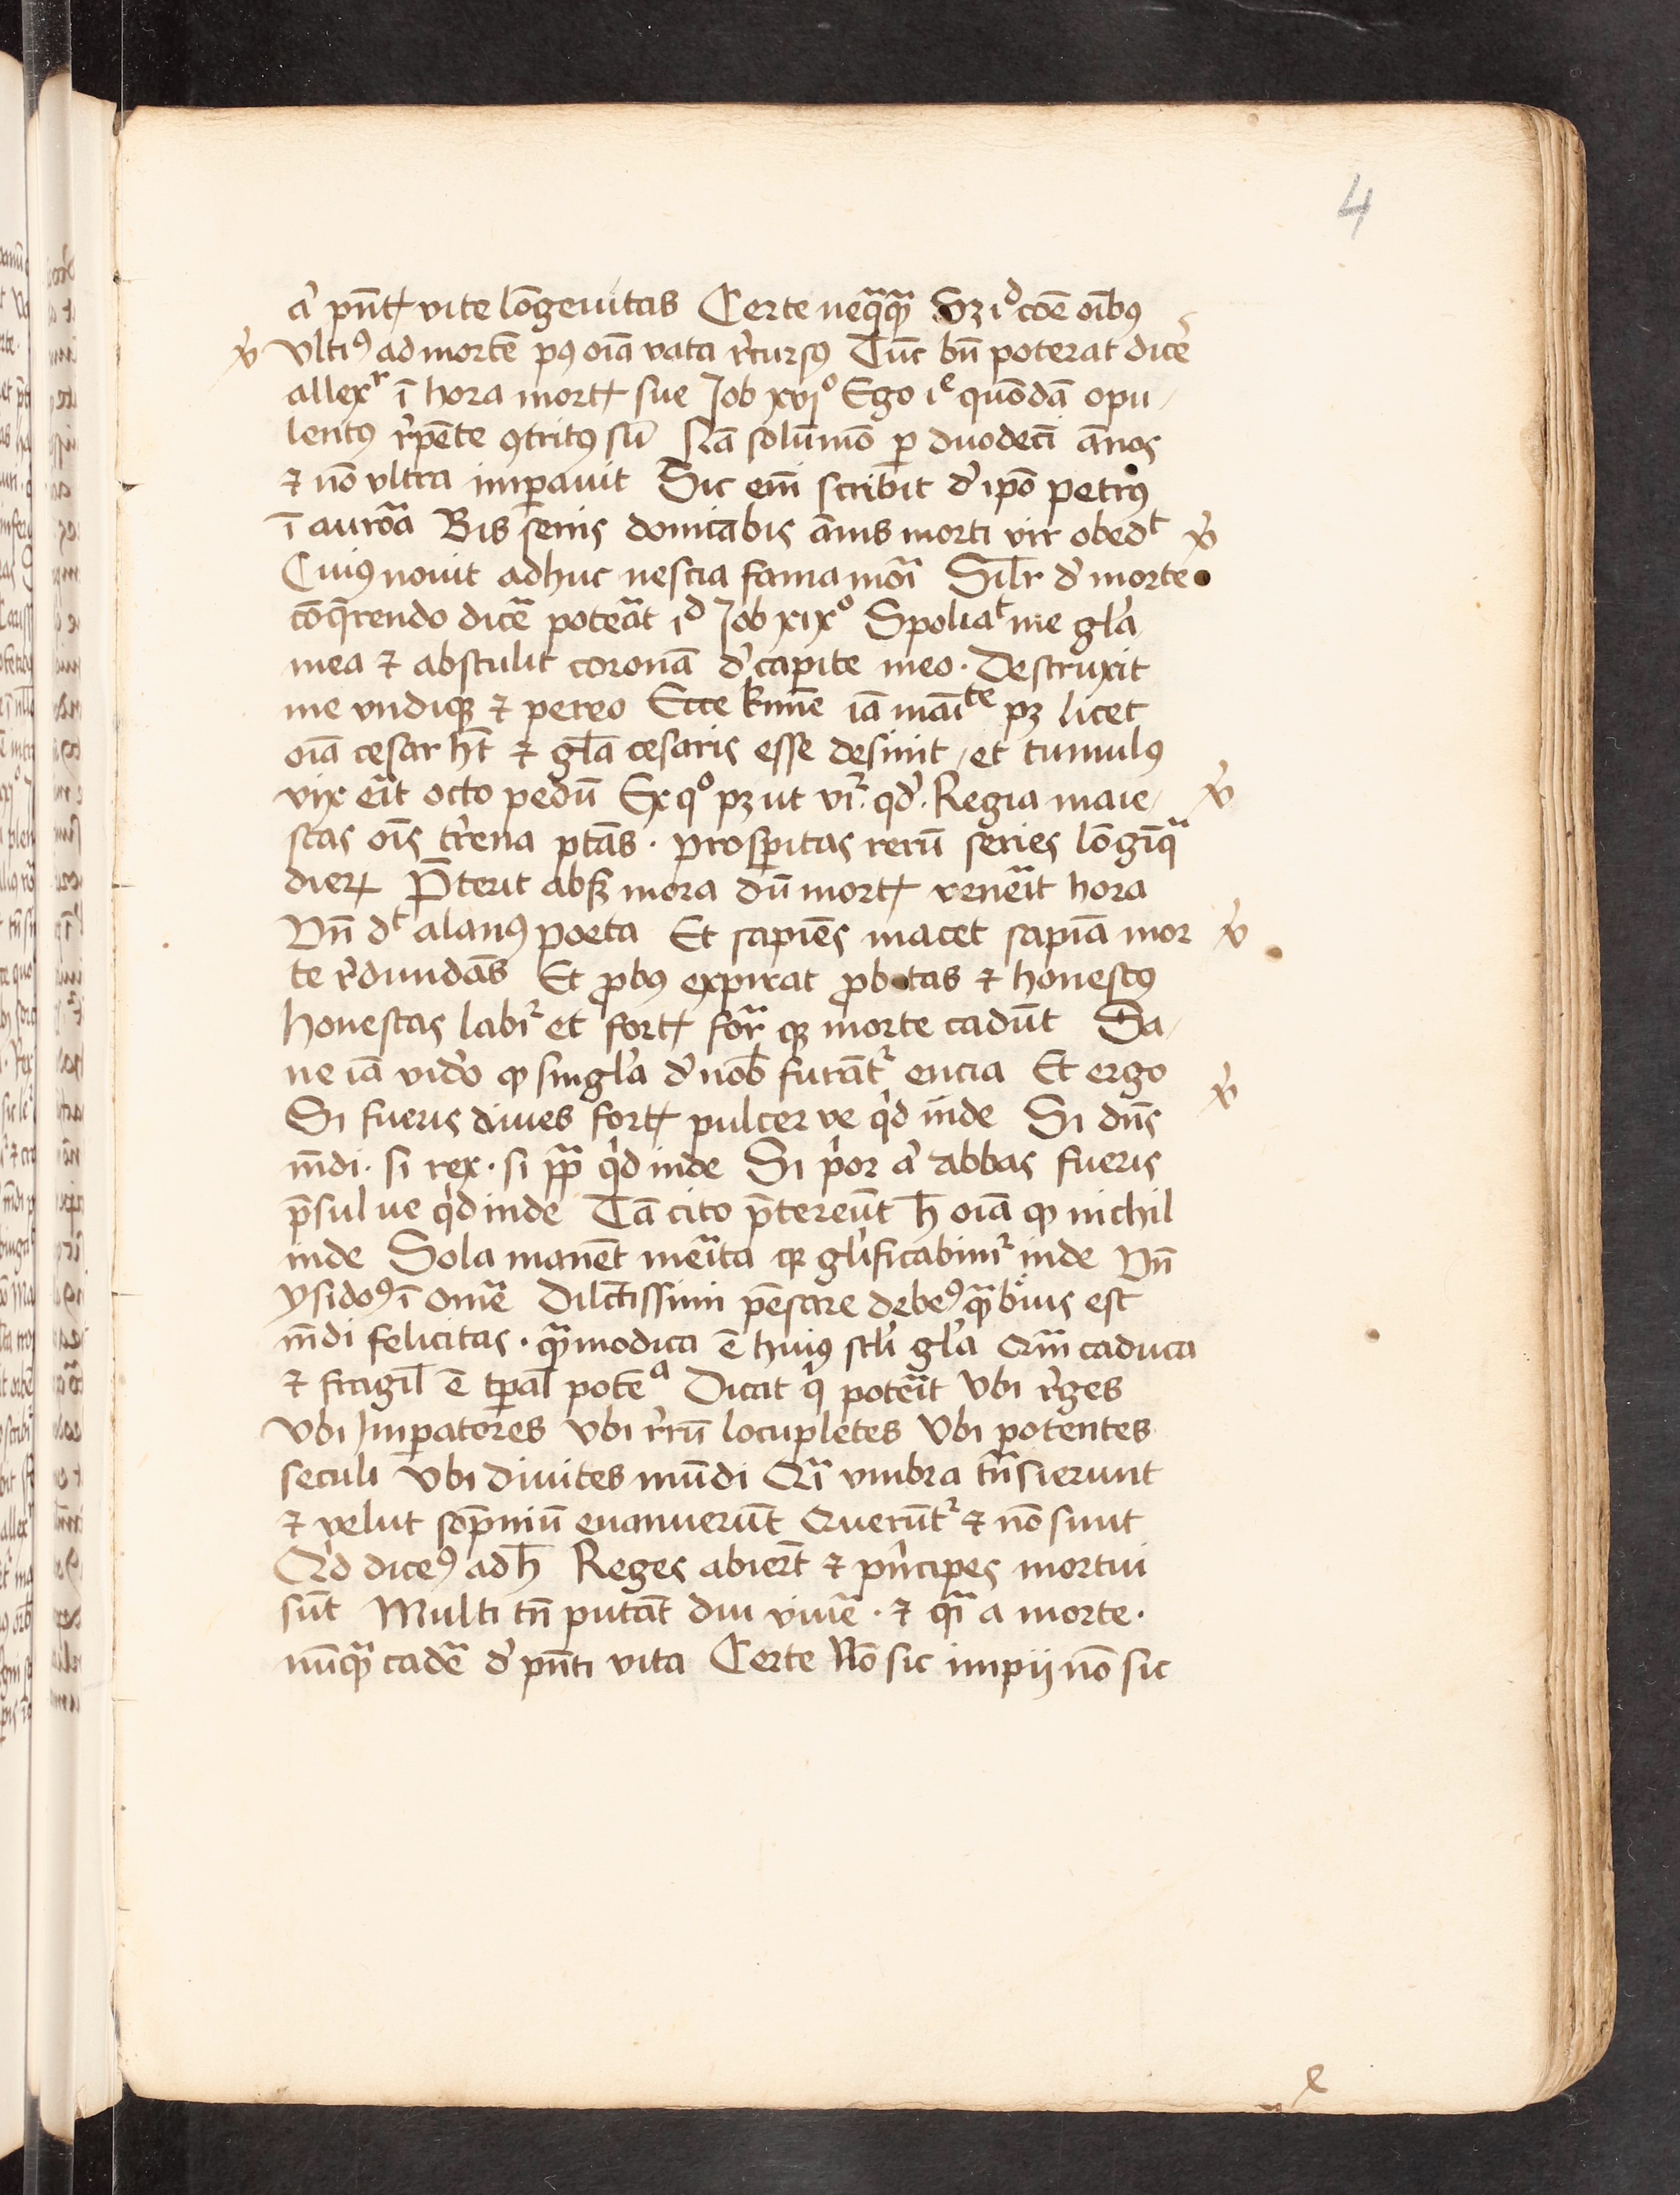 4
a᷒ pn̄tꝭ vite lōgeuitas Certe neqͣqꝫ Sꝫ iᵈ cōe oībꝰ
vltiꝰ ad mortē pꝰ oīa vata r̓cursꝰ Tūc bn̄ poterat dice᷒
allexʳ ī hora mortꝭ sue Job xvjº Ego iᵉ quōdā opu/
lentꝰ r̓pēte ꝯtritꝰ sū Nā solūmō ꝑ duodecī ānos
⁊ nō vltra imꝑauit Sic em̄ scribit d̓ ipō petrꝰ
ī auroͣa Bis senis domītabis ānis morti vir obedᵗ
Cuiꝰ nouit adhuc nescia fama mori Silr̄ d̓ morte
cōq̄rendo dicē poteāt iᵈ Job xixº Spoliaᵗ me gl̓a
mea ⁊ abstulit coronā d̓ capite meo · Destruxit
me vndiqꝫ ⁊ pereo Ecce kīme iā maīᵗᵉ pꝫ licet
oīa cesar hꝫ ⁊ gl̄a cesaris esse desinit / et tumulꝰ
vix eīt octo pedū Ex qº pꝫ ut vr̄ · qd̓ · Regia maie/
stas oīs tr̓ena ptās · prosꝑitas rerū series lōgīqͣ
dierꝝ P̄terit absqꝫ mora dū mortꝭ veneīt hora
Vn̄ dᵗ alanꝰ poeta Et sapiēs macet sapīa mor
te r̓dundās Et ꝓbꝰ expirat ꝓbitas ⁊ honestꝰ
honestas labiᷣ et fortꝭ for̄ qꝫ morte cadūt Sa/
ne iā vid̓o ꝙ singl̓a d̓ nob̄ furātᷣ encia Et ergo
Si fueris diues fortꝭ pulcer ve q̇d inde Si dn̄s
mͫdi · si rex · si pp̄ q̇d inde Si p̓or a᷒ abbas fueris
p̄sul ue q̇d inde Tā cito p̄tereūt h̄ oīa ꝙ nichil
inde Sola manēt meīta qꝫ gl̓ificabimᷣ inde Vn̄
ysidoꝰ ī omē Dilc̄tissimi pēsare debeꝰ qͣꝫ bͤuis est
mͫdi felicitas · qͣꝫ modica ē huiꝰ scl̓i gl̓a Qͣꝫ caduca
⁊ fragil̄ ē tꝑal̄ potēᵃ Dicat q̇ poteīt Vbi r̓ges
Vbi Jmꝑatores Vbi r̓rū locupletes Vbi potentes
seculi Vbi diuites mūdi Qͣi vmbra tn̄sierunt
⁊ velut sōpniū euanuerūt Querūtᷣ ⁊ nō sunt
Q̇d diceꝰ ad h̄ Reges abier̄t ⁊ pn̓cipes mortui
sūt Multi tn̄ putāt diu viuē · ⁊ qͣi a morte ·
nūqͣꝫ cadē d̓ pn̄ti vita Certe Nō sic impij nō sic